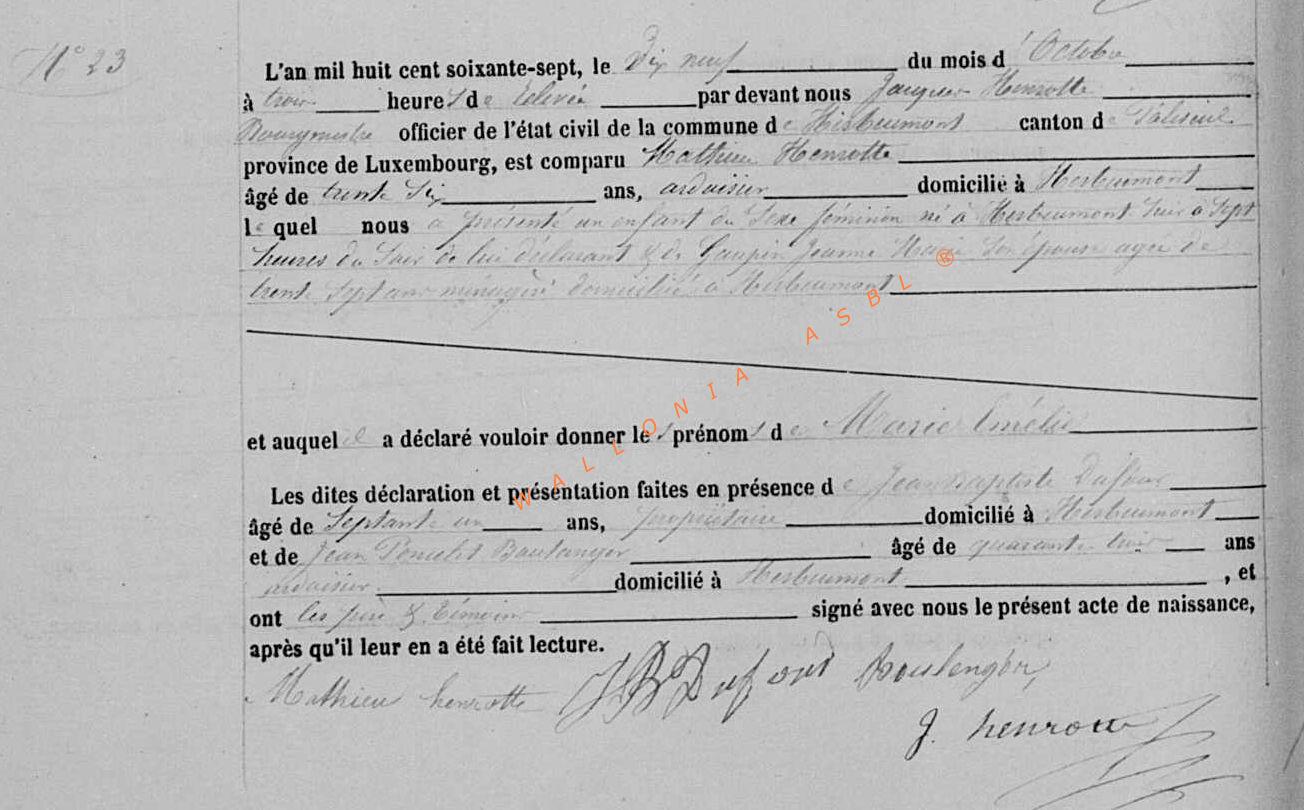 N° 23
L'an mil huit cent soixante-sept, le Dix neuf du mois d'Octobre
à trois heures de relevée par devant nous Jacques Henrotte
Bourgmestre officier de l'état civil de la commune de Herbeumont canton de Paliseul
province de Luxembourg, est comparu Mathieu Henrotte
âgé de trente Six ans, ardoisier domicilié à Herbeumont
le quel nous a présenté un enfant du Sexe féminin né à Herbeumont hier à Sept
heures du Soir de lui déclarant & de Jeanne Marie Son épouse agée de
trente Sept ans ménagère domiciliée à Herbeumont
et auquel il a déclaré vouloir donner les prénoms de Marie Emélie
Les dites déclaration et présentation faites en présence de Jean Baptiste Dufour
âgé de Septante un ans, propriétaire domicilié à Herbeumont
et de Jean Boulanger âgé de quarante trois ans
ardoisier domicilié à Herbeumont, et
ont les père & témoins signé avec nous le présent acte de naissance,
après qu'il leur en a été fait lecture.
Mathieu henrotte JB Dufour Boulenger
J. henrotte
WALLONIA ASBL ®